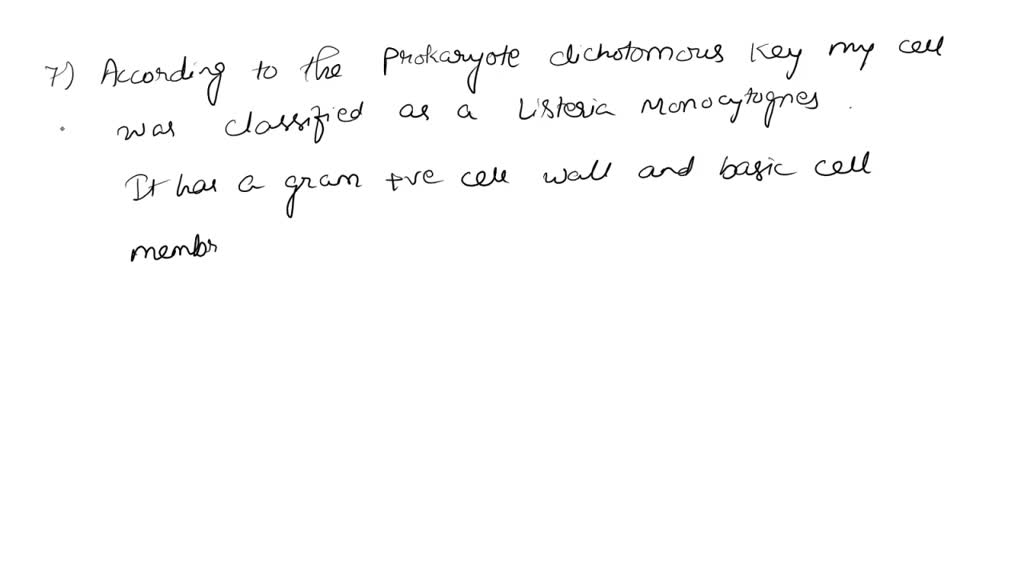 7) According to the Prokaryote dichotomous Key my cell
was classified as a Listeria Monocytognes.
It has a gram +ve cell wall and basic cell
membr